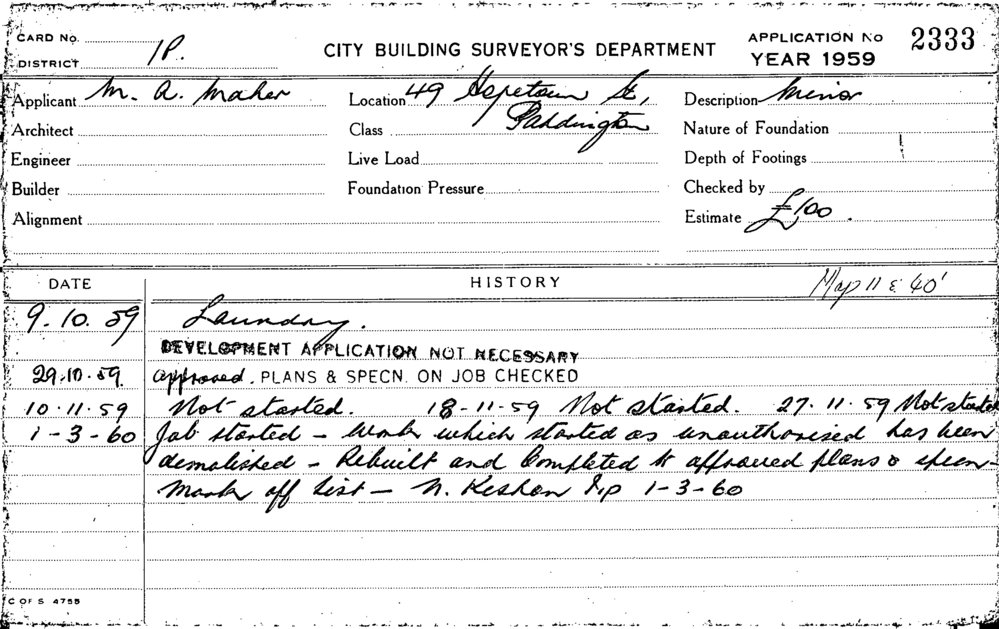 CARD No.
DISTRICT 1P.
CITY BUILDING SURVEYOR'S DEPARTMENT
APPLICATION No 2333
YEAR 1959
Applicant M. A. Maher
Location 49 Hopetoun St,
Paddington
Description Minor
Architect
Class
Nature of Foundation
Engineer
Live Load
Depth of Footings
Builder
Foundation Pressure
Checked by
Alignment
Estimate £100.
DATE HISTORY Map 11 & 40'
9.10.59 Laundry.
DEVELOPMENT APPLICATION NOT NECESSARY
29.10.59. approved. PLANS & SPECN. ON JOB CHECKED
10.11.59 Not started. 18-11-59 Not started. 27.11.59 Not started
1-3-60 Job started - Work which started as unauthorised has been
demolished - Rebuilt and Completed to approved plans & specn-
Mark off list - N. 1-3-60
C OF S 4755